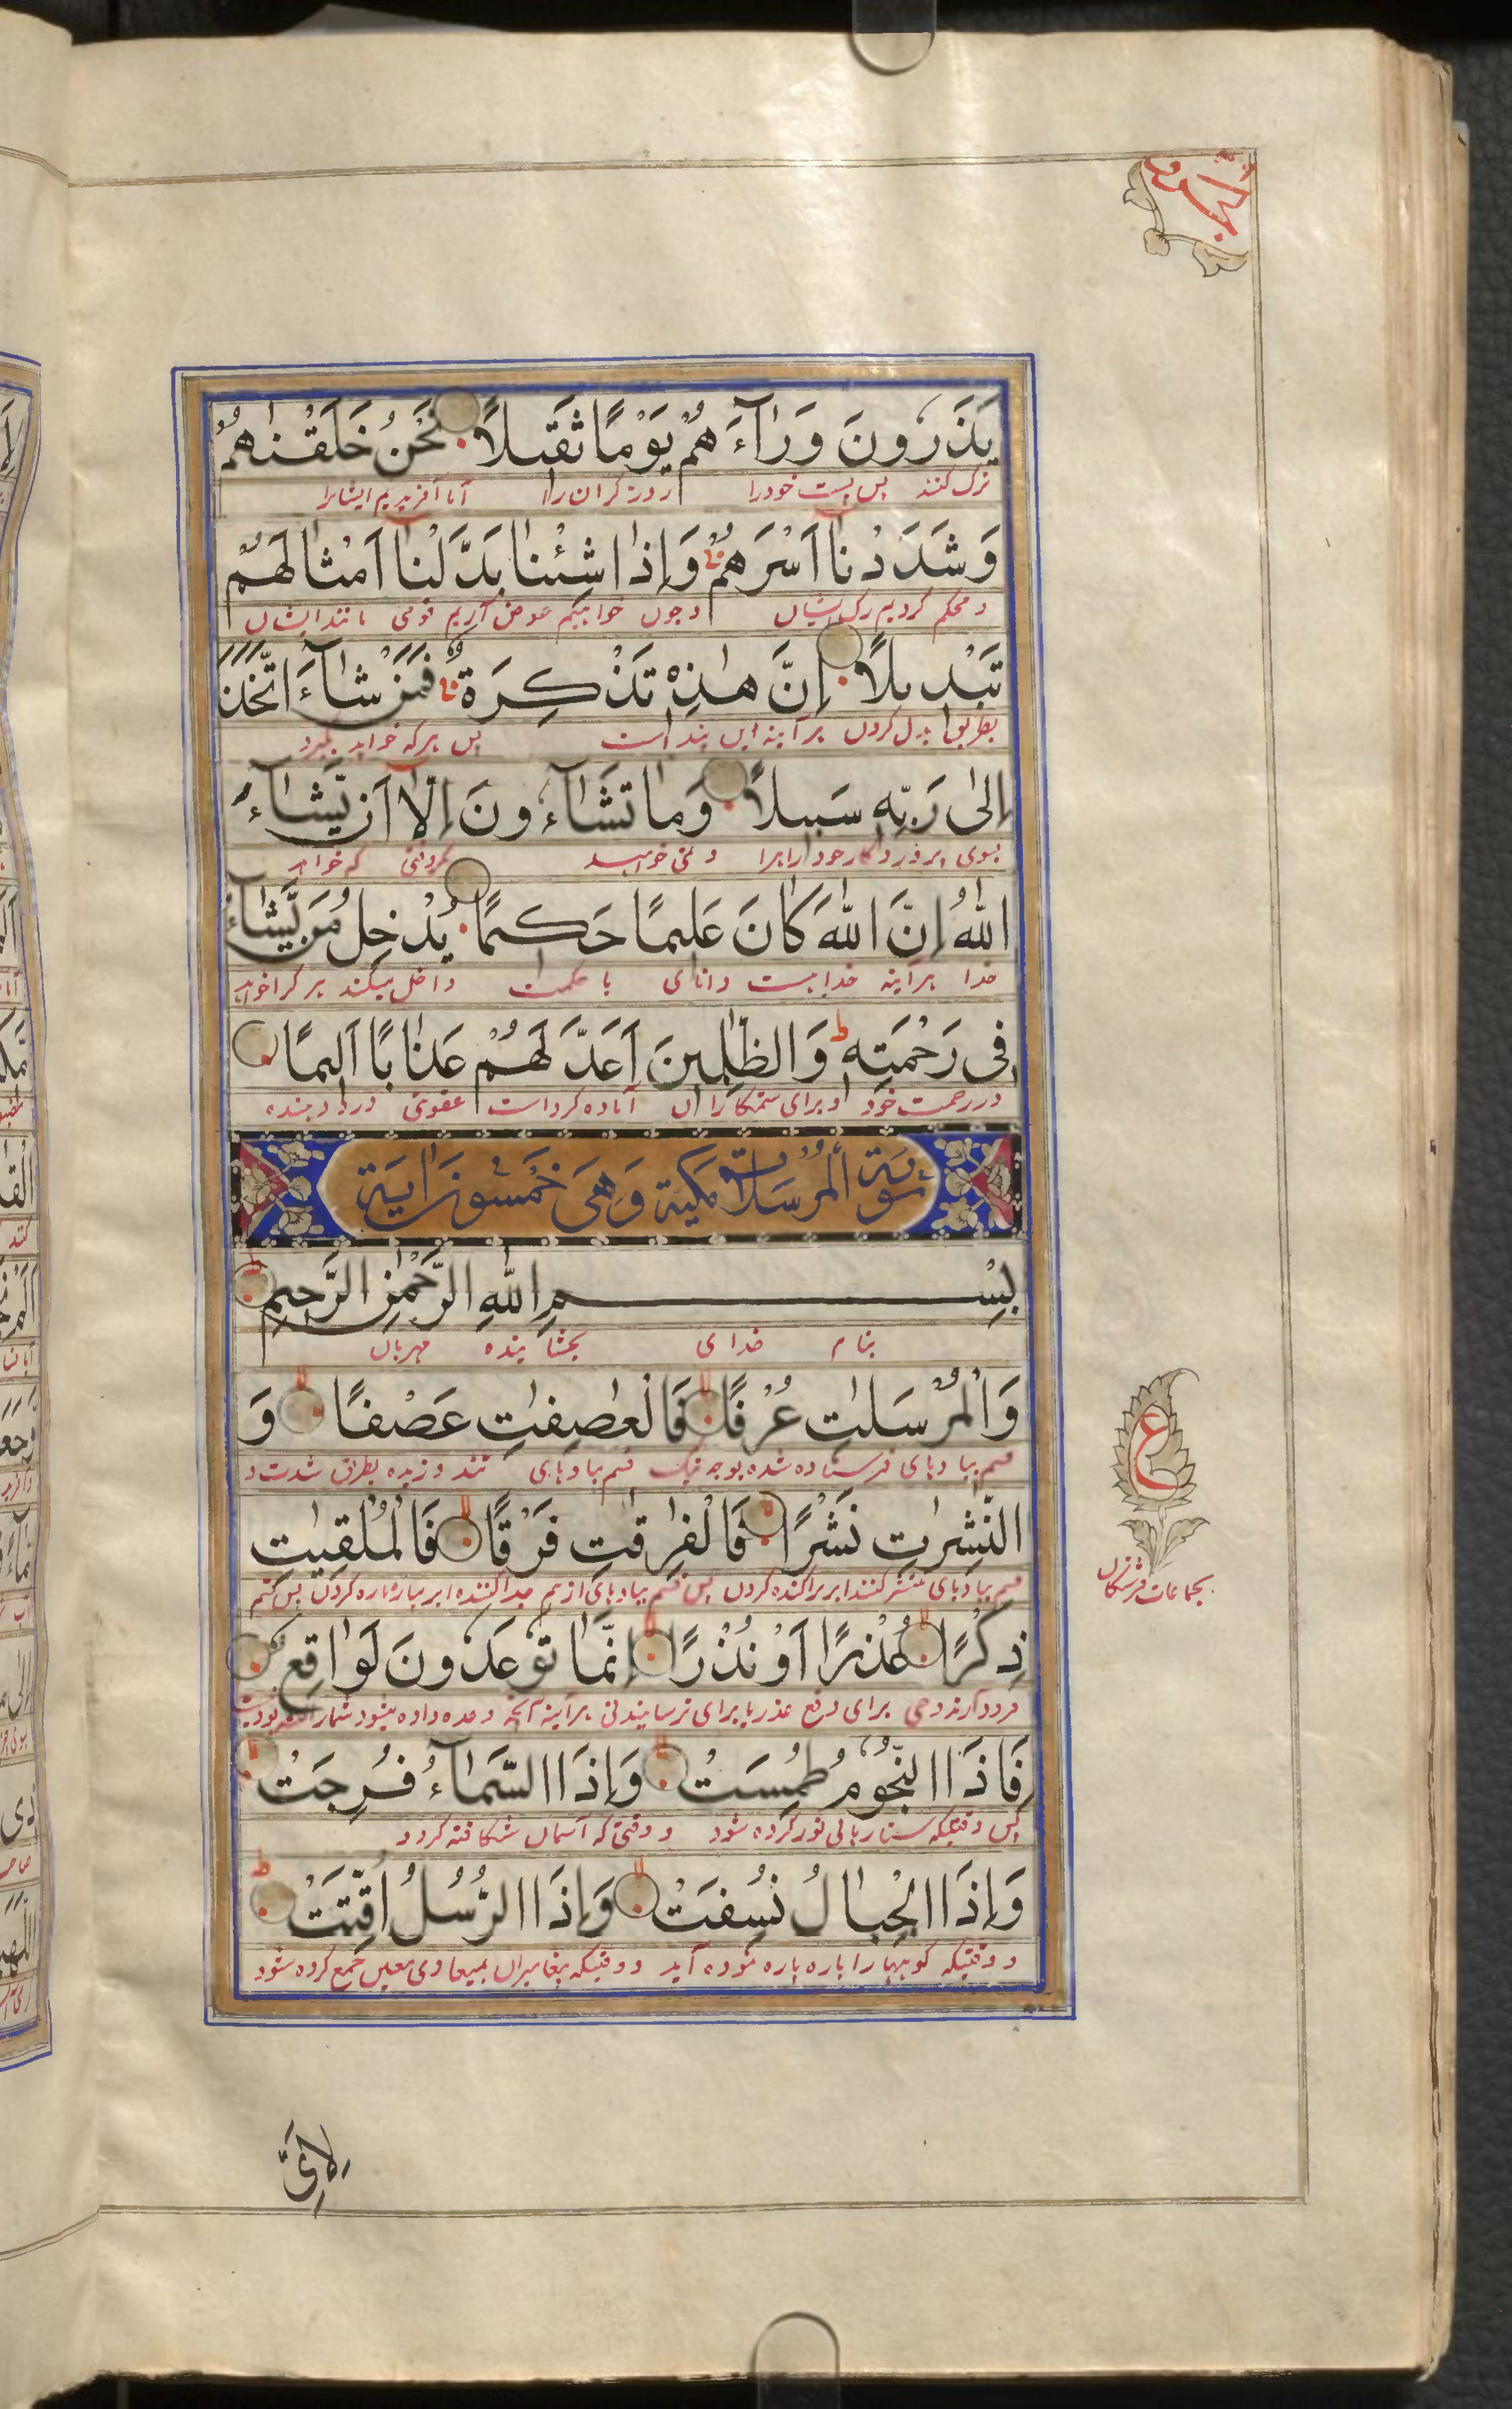 يَذَرُونَ وَرَآءَهُمْ يَوْمًا ثَقِيلًا نَحْنُ خَلَقْنٰهُمْ
ترک کنند پس پشت خود را روز گران را آنا آفریدیم ایشانرا
وَشَدَدْنَآ اَسْرَهُمْ وَاِذَا شِئْنَا بَدَّلْنَآ اَمْثَالَهُمْ
و محکم کردیم رک ایشان و چون خواهیم عوض آریم قومی مانند ایشان
تَبْدِيلًا اِنَّ هٰذِهٖ تَذْكِرَةٌ فَمَنْ شَآءَ اتَّخَذَ
بطریق بدل کردن هر آینه این پند است پس هر که خواهد بگیرد
اِلٰى رَبِّهٖ سَبِيلًا وَمَا تَشَآءُونَ اِلَّآ اَنْ يَّشَآءَ
بسوی پروردگار خود راهرا و نمی خواهید که خواهد
اللّٰهُ اِنَّ اللّٰهَ كَانَ عَلِيمًا حَكِيمًا يُدْخِلُ مَنْ يَّشَآءُ
خدا هر آینه خدا هست دانای با حکمت داخل میکند هر کرا خواهد
فِى رَحْمَتِهٖ ط وَالظّٰلِمِينَ اَعَدَّ لَهُمْ عَذَابًا اَلِيمًا
در رحمت خود و برای ستمکاران آماده کرد است عقوبتی درد دهنده
سُورَةُ الْمُرْسَلَات مَكِّيَة وَهِىَ خَمْسُونَ اٰيَة
بِسْمِ اللّٰهِ الرَّحْمٰنِ الرَّحِيمِ
بنام خدای بخشاینده مهربان
وَالْمُرْسَلٰتِ عُرْفًا فَالْعٰصِفٰتِ عَصْفًا وَ
قسم ببادهای فرستاده شده بوجه نیک قسم ببادهای تند وزیده بطریق شدت و
النّٰشِرٰتِ نَشْرًا فَالْفٰرِقٰتِ فَرْقًا فَالْمُلْقِيٰتِ
قسم ببادهای منتشر کننده ابر پراکنده کردن پس قسم ببادهای از هم جدا کننده ابر پاره پاره کردن پس قسم
ع
بجماعات فرشتگان
ذِكْرًا عُذْرًا اَوْ نُذْرًا اِنَّمَا تُوعَدُونَ لَوَاقِعٌ
فرود آرنده وحی برای دفع عذر یا برای ترسانیدنی هر آینه آنچه وعده داده میشود شمارا
فَاِذَا النُّجُومُ طُمِسَتْ وَاِذَا السَّمَآءُ فُرِجَتْ
پس وقتیکه ستارها بی نور کرده شود و وقتی که آسمان شکافته کردد
وَاِذَا الْجِبَالُ نُسِفَتْ وَاِذَا الرُّسُلُ اُقِّتَتْ ط
و وقتیکه کوهها را پاره پاره نموده آید و وقتیکه پیغامبران بمیعادی معین جمع کرده شود
لِاَىِّ